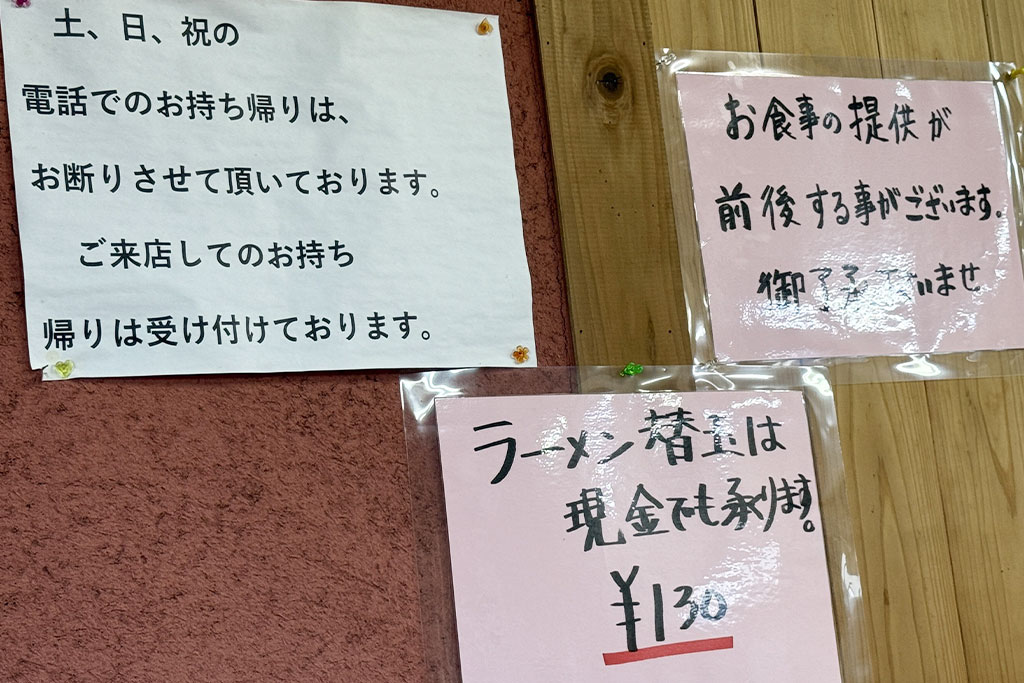 土、日、祝の
電話でのお持ち帰りは、
お断りさせて頂いております。
ご来店してのお持ち
帰りは受け付けております。
お食事の提供が
前後する事がございます。
御了承下さいませ
ラーメン替玉は
現金でも承ります。
¥130